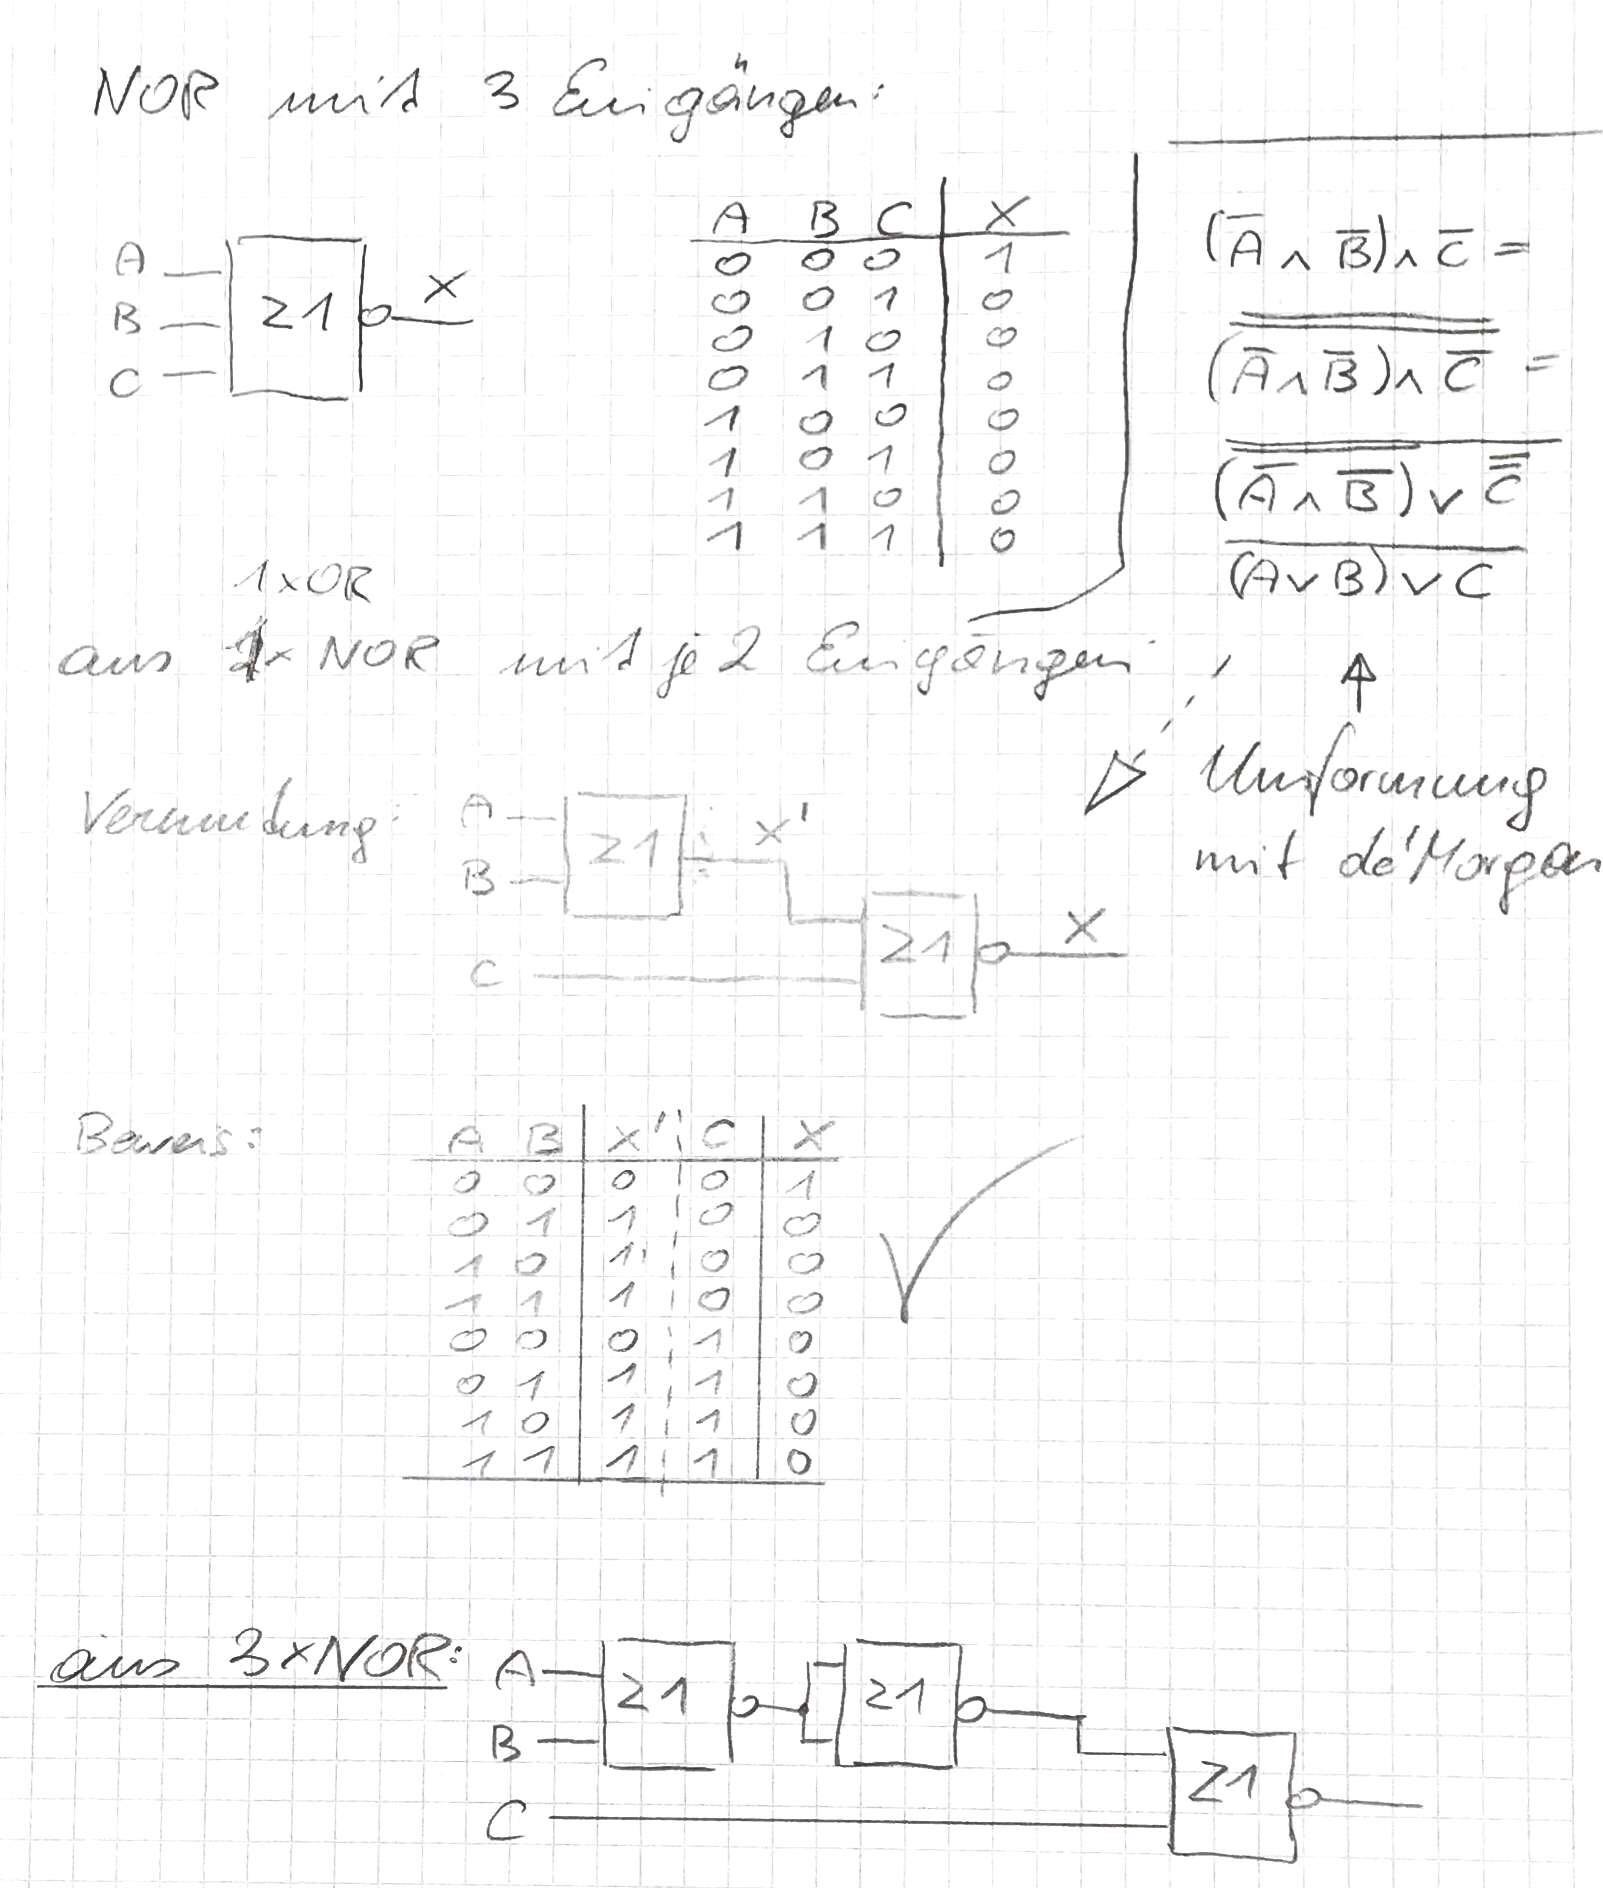 NOR mit 3 Eingängen:
A
B
C
≥1
X
A B C | X
0 0 0 | 1
0 0 1 | 0
0 1 0 | 0
0 1 1 | 0
1 0 0 | 0
1 0 1 | 0
1 1 0 | 0
1 1 1 | 0
(A̅ ∧ B̅) ∧ C̅ =
(A̅ ∧ B̅) ∧ C̅ =
(A̅ ∧ B̅) ∨ C̅
(A ∨ B) ∨ C
↑
Umformung
mit de'Morgan
1×OR
aus 1× NOR mit je 2 Eingängen
Vermutung:
A
B
≥1
X'
C
≥1
X
Beweis:
A B | X' C | X
0 0 | 0 0 | 1
0 1 | 1 0 | 0
1 0 | 1 0 | 0
1 1 | 1 0 | 0
0 0 | 0 1 | 0
0 1 | 1 1 | 0
1 0 | 1 1 | 0
1 1 | 1 1 | 0
aus 3×NOR:
A
B
≥1
≥1
C
≥1